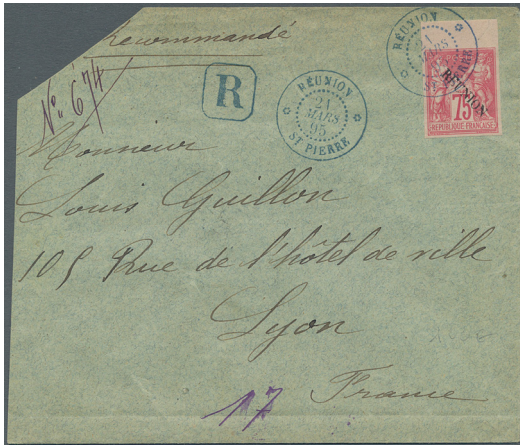 Recommandé
N° 674
R
RÉUNION
21
MARS
95
ST PIERRE
RÉUNION
21
MARS
RÉUNION
75
RÉPUBLIQUE FRANÇAISE
Monsieur
Louis Guillon
105 Rue de l'hôtel de ville
Lyon
France
17